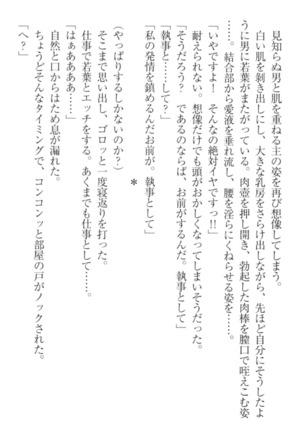 見知らぬ男と肌を重ねる主の姿を再び想像してしまう。
白い肌を剥き出しにし、大きな乳房をさらけ出しながら、先ほど自分にそうしたよ
うに男に若葉がまたがっている。肉壺を押し開き、勃起した肉棒を膣口で咥えこむ姿
を……。結合部から愛液を垂れ流し、腰を淫らにくねらせる姿を……。
「いやですよ!　そんなの絶対イヤですっ!!」
耐えられない。想像だけでも頭がおかしくなってしまいそうだった。
「そうだろう?　であるのならば、お前がするんだ。執事として」
「執事と……して?」
私の発情を鎮めるんだお前が。執事として」
*
(やっぱりするしかないのか?)
そこまで思い出し、ゴロッと一度寝返りを打った。
仕事で若葉とエッチをする。あくまでも仕事として……。
「はぁああああ……」
自然と口からはため息が漏れた。
ちょうどそんなタイミングで、コンコンッと部屋の戸がノックされた。
「へ?」